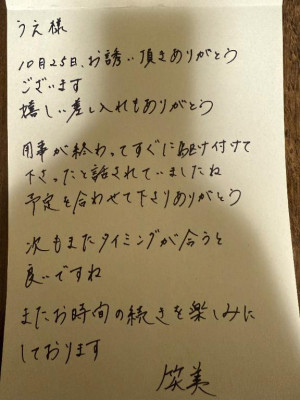 うえ様
10月25日、お誘い頂きありがとう
ございます
嬉しい差し入れもありがとう
用事が終わってすぐに駆け付けて
下さったと話されていましたね
予定を合わせて下さりありがとう
次もまたタイミングが合うと
良いですね
またお時間の続きを楽しみに
しております
笑美